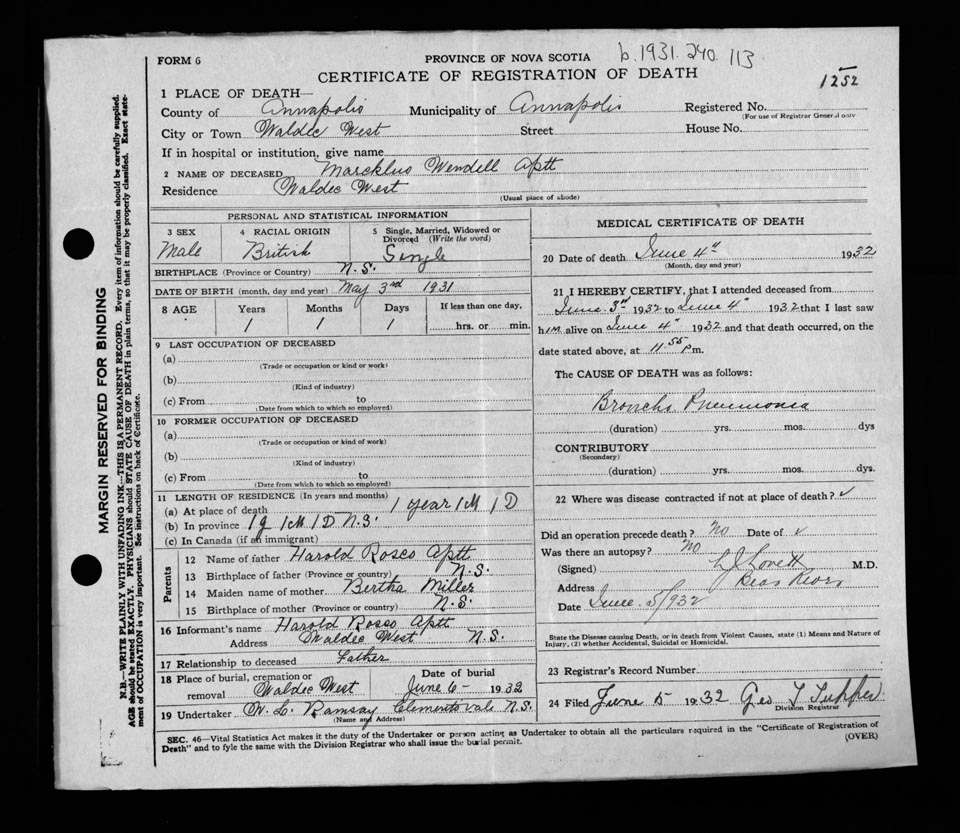 FORM 6
PROVINCE OF NOVA SCOTIA
b. 1931. 240. 113
CERTIFICATE OF REGISTRATION OF DEATH
1252
1 PLACE OF DEATH—
County of Annapolis Municipality of Annapolis Registered No.
(For use of Registrar General only
City or Town Waldec West Street House No.
If in hospital or institution, give name
2 NAME OF DECEASED Marcklus Wendell Aptt
Residence Waldec West
(Usual place of abode)
PERSONAL AND STATISTICAL INFORMATION
3 SEX 4 RACIAL ORIGIN 5 Single, Married, Widowed or Divorced (Write the word)
Male British Single
BIRTHPLACE (Province or Country) N.S.
DATE OF BIRTH (month, day and year) May 3rd 1931
8 AGE Years Months Days If less than one day,
1 1 1 hrs. or min.
9 LAST OCCUPATION OF DECEASED
(a)
(Trade or occupation or kind or work)
(b)
(Kind of industry)
(c) From to
(Date from which to which so employed)
10 FORMER OCCUPATION OF DECEASED
(a)
(Trade or occupation or kind of work)
(b)
(Kind of industry)
(c) From to
(Date from which to which so employed)
11 LENGTH OF RESIDENCE (In years and months)
(a) At place of death 1 year 1M 1D
(b) In province 1y 1M 1D N.S.
(c) In Canada (if an immigrant)
Parents
12 Name of father Harold Rosco Aptt
13 Birthplace of father (Province or country) N.S.
14 Maiden name of mother Bertha Miller
15 Birthplace of mother (Province or country) N.S.
16 Informant's name Harold Rosco Aptt
Address Waldec West N.S.
17 Relationship to deceased Father
18 Place of burial, cremation or removal Waldec West Date of burial June 6- 1932
19 Undertaker W. L. Ramsay Clementsvale N.S.
(Name and Address)
MEDICAL CERTIFICATE OF DEATH
20 Date of death June 4th 1932
(Month, day and year)
21 I HEREBY CERTIFY, that I attended deceased from
June 3rd 1932 to June 4th 1932 that I last saw
him alive on June 4th 1932 and that death occurred, on the
date stated above, at 11.55 p m.
The CAUSE OF DEATH was as follows:
Broncho Pneumonia
(duration) yrs. mos. dys
CONTRIBUTORY
(Secondary)
(duration) yrs. mos. dys.
22 Where was disease contracted if not at place of death? ✓
Did an operation precede death? No Date of ✓
Was there an autopsy? No
(Signed) Lovett M.D.
Address Bear River
Date June 5/932
State the Disease causing Death, or in death from Violent Causes, state (1) Means and Nature of
Injury, (2) whether Accidental, Suicidal or Homicidal.
23 Registrar's Record Number
24 Filed June 5 1932 Geo T Tupper
Division Registrar
SEC. 46—Vital Statistics Act makes it the duty of the Undertaker or person acting as Undertaker to obtain all the particulars required in the "Certificate of Registration of
Death" and to fyle the same with the Division Registrar who shall issue the burial permit.
(OVER)
MARGIN RESERVED FOR BINDING
N.B.—WRITE PLAINLY WITH UNFADING INK—THIS IS A PERMANENT RECORD. Every item of information should be carefully supplied.
AGE should be stated EXACTLY. PHYSICIANS should STATE CAUSE OF DEATH in plain terms, so that it may be properly classified. Exact state-
ment of OCCUPATION is very important. See instructions on back of Certificate.